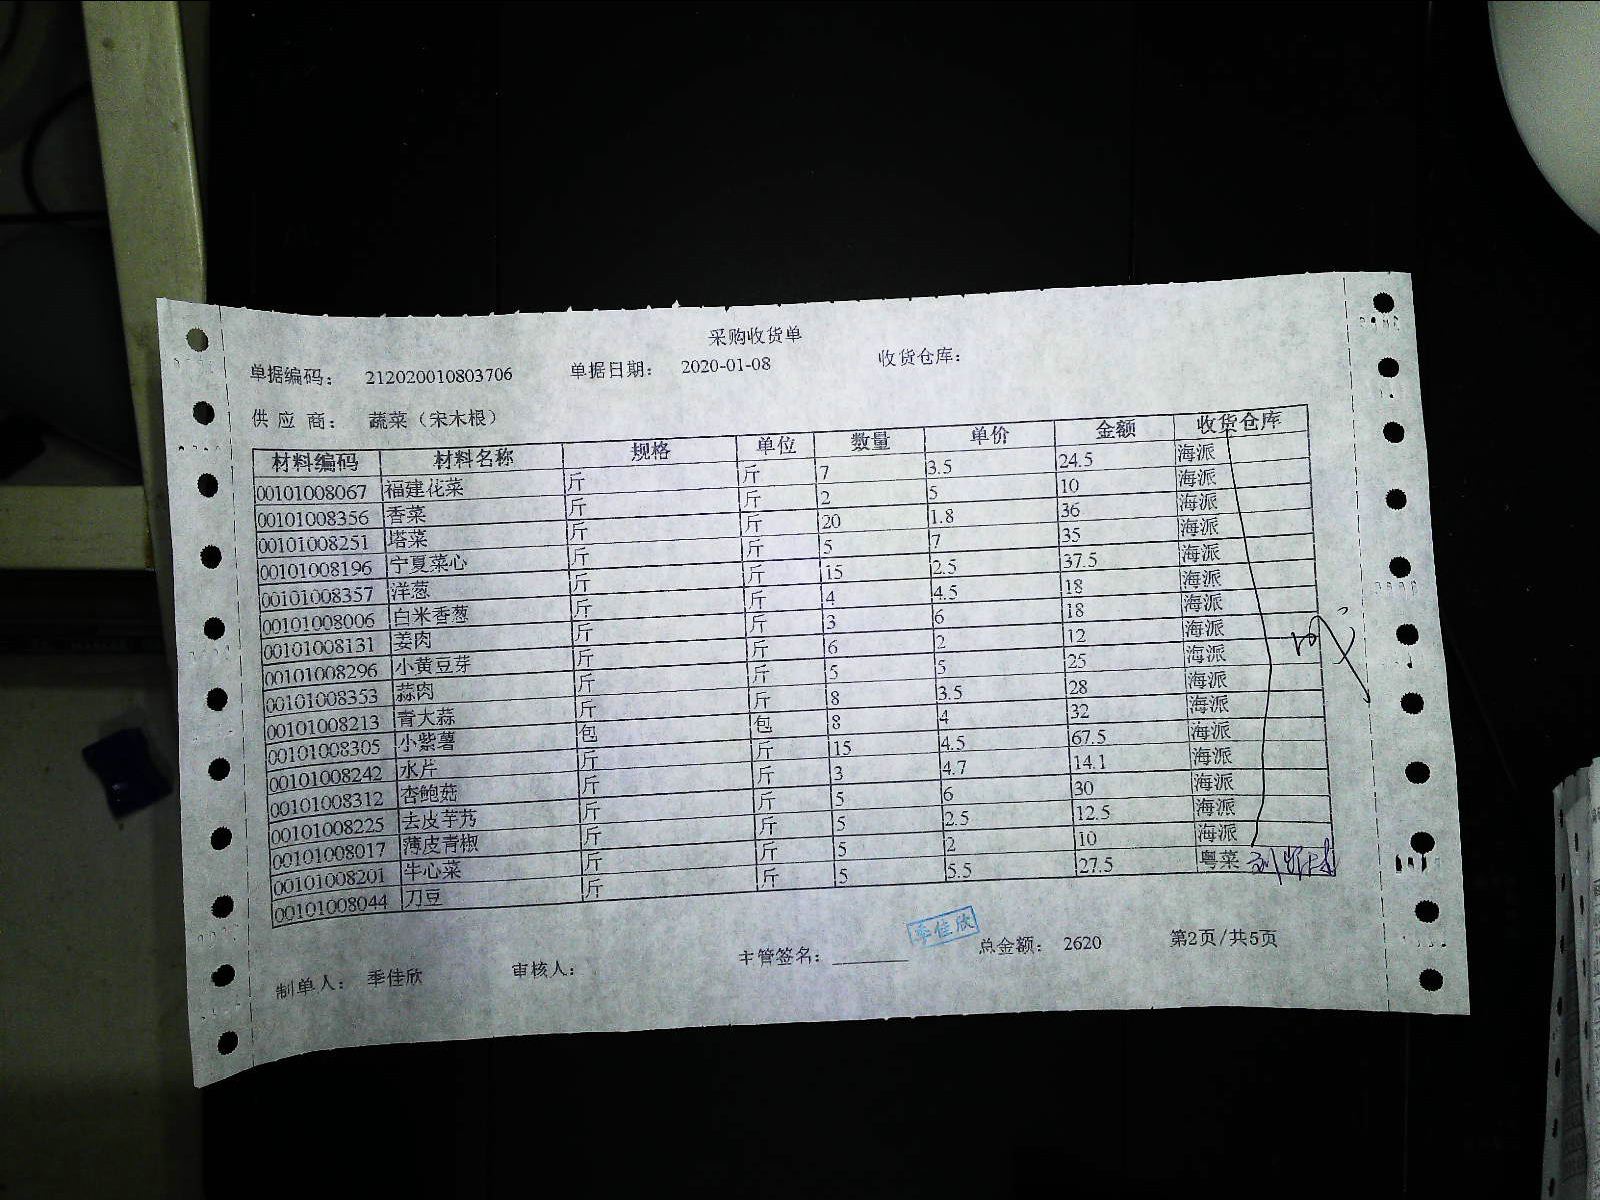 采购收货单
单据编码： 212020010803706 单据日期： 2020-01-08 收货仓库：
供 应 商： 蔬菜（宋木根）
材料编码 材料名称 规格 单位 数量 单价 金额 收货仓库
00101008067 福建花菜 斤 斤 7 3.5 24.5 海派
00101008356 香菜 斤 斤 2 5 10 海派
00101008251 塔菜 斤 斤 20 1.8 36 海派
00101008196 宁夏菜心 斤 斤 5 7 35 海派
00101008357 洋葱 斤 斤 15 2.5 37.5 海派
00101008006 白米香葱 斤 斤 4 4.5 18 海派
00101008131 姜肉 斤 斤 3 6 18 海派
00101008296 小黄豆芽 斤 斤 6 2 12 海派
00101008353 蒜肉 斤 斤 5 5 25 海派
00101008213 青大蒜 斤 斤 8 3.5 28 海派
00101008305 小紫薯 包 包 8 4 32 海派
00101008242 水芹 斤 斤 15 4.5 67.5 海派
00101008312 杏鲍菇 斤 斤 3 4.7 14.1 海派
00101008225 去皮芋艿 斤 斤 5 6 30 海派
00101008017 薄皮青椒 斤 斤 5 2.5 12.5 海派
00101008201 牛心菜 斤 斤 5 2 10 海派
00101008044 刀豆 斤 斤 5 5.5 27.5 粤菜
季佳欣
制单人： 季佳欣 审核人： 主管签名：________ 总金额： 2620 第2页/共5页